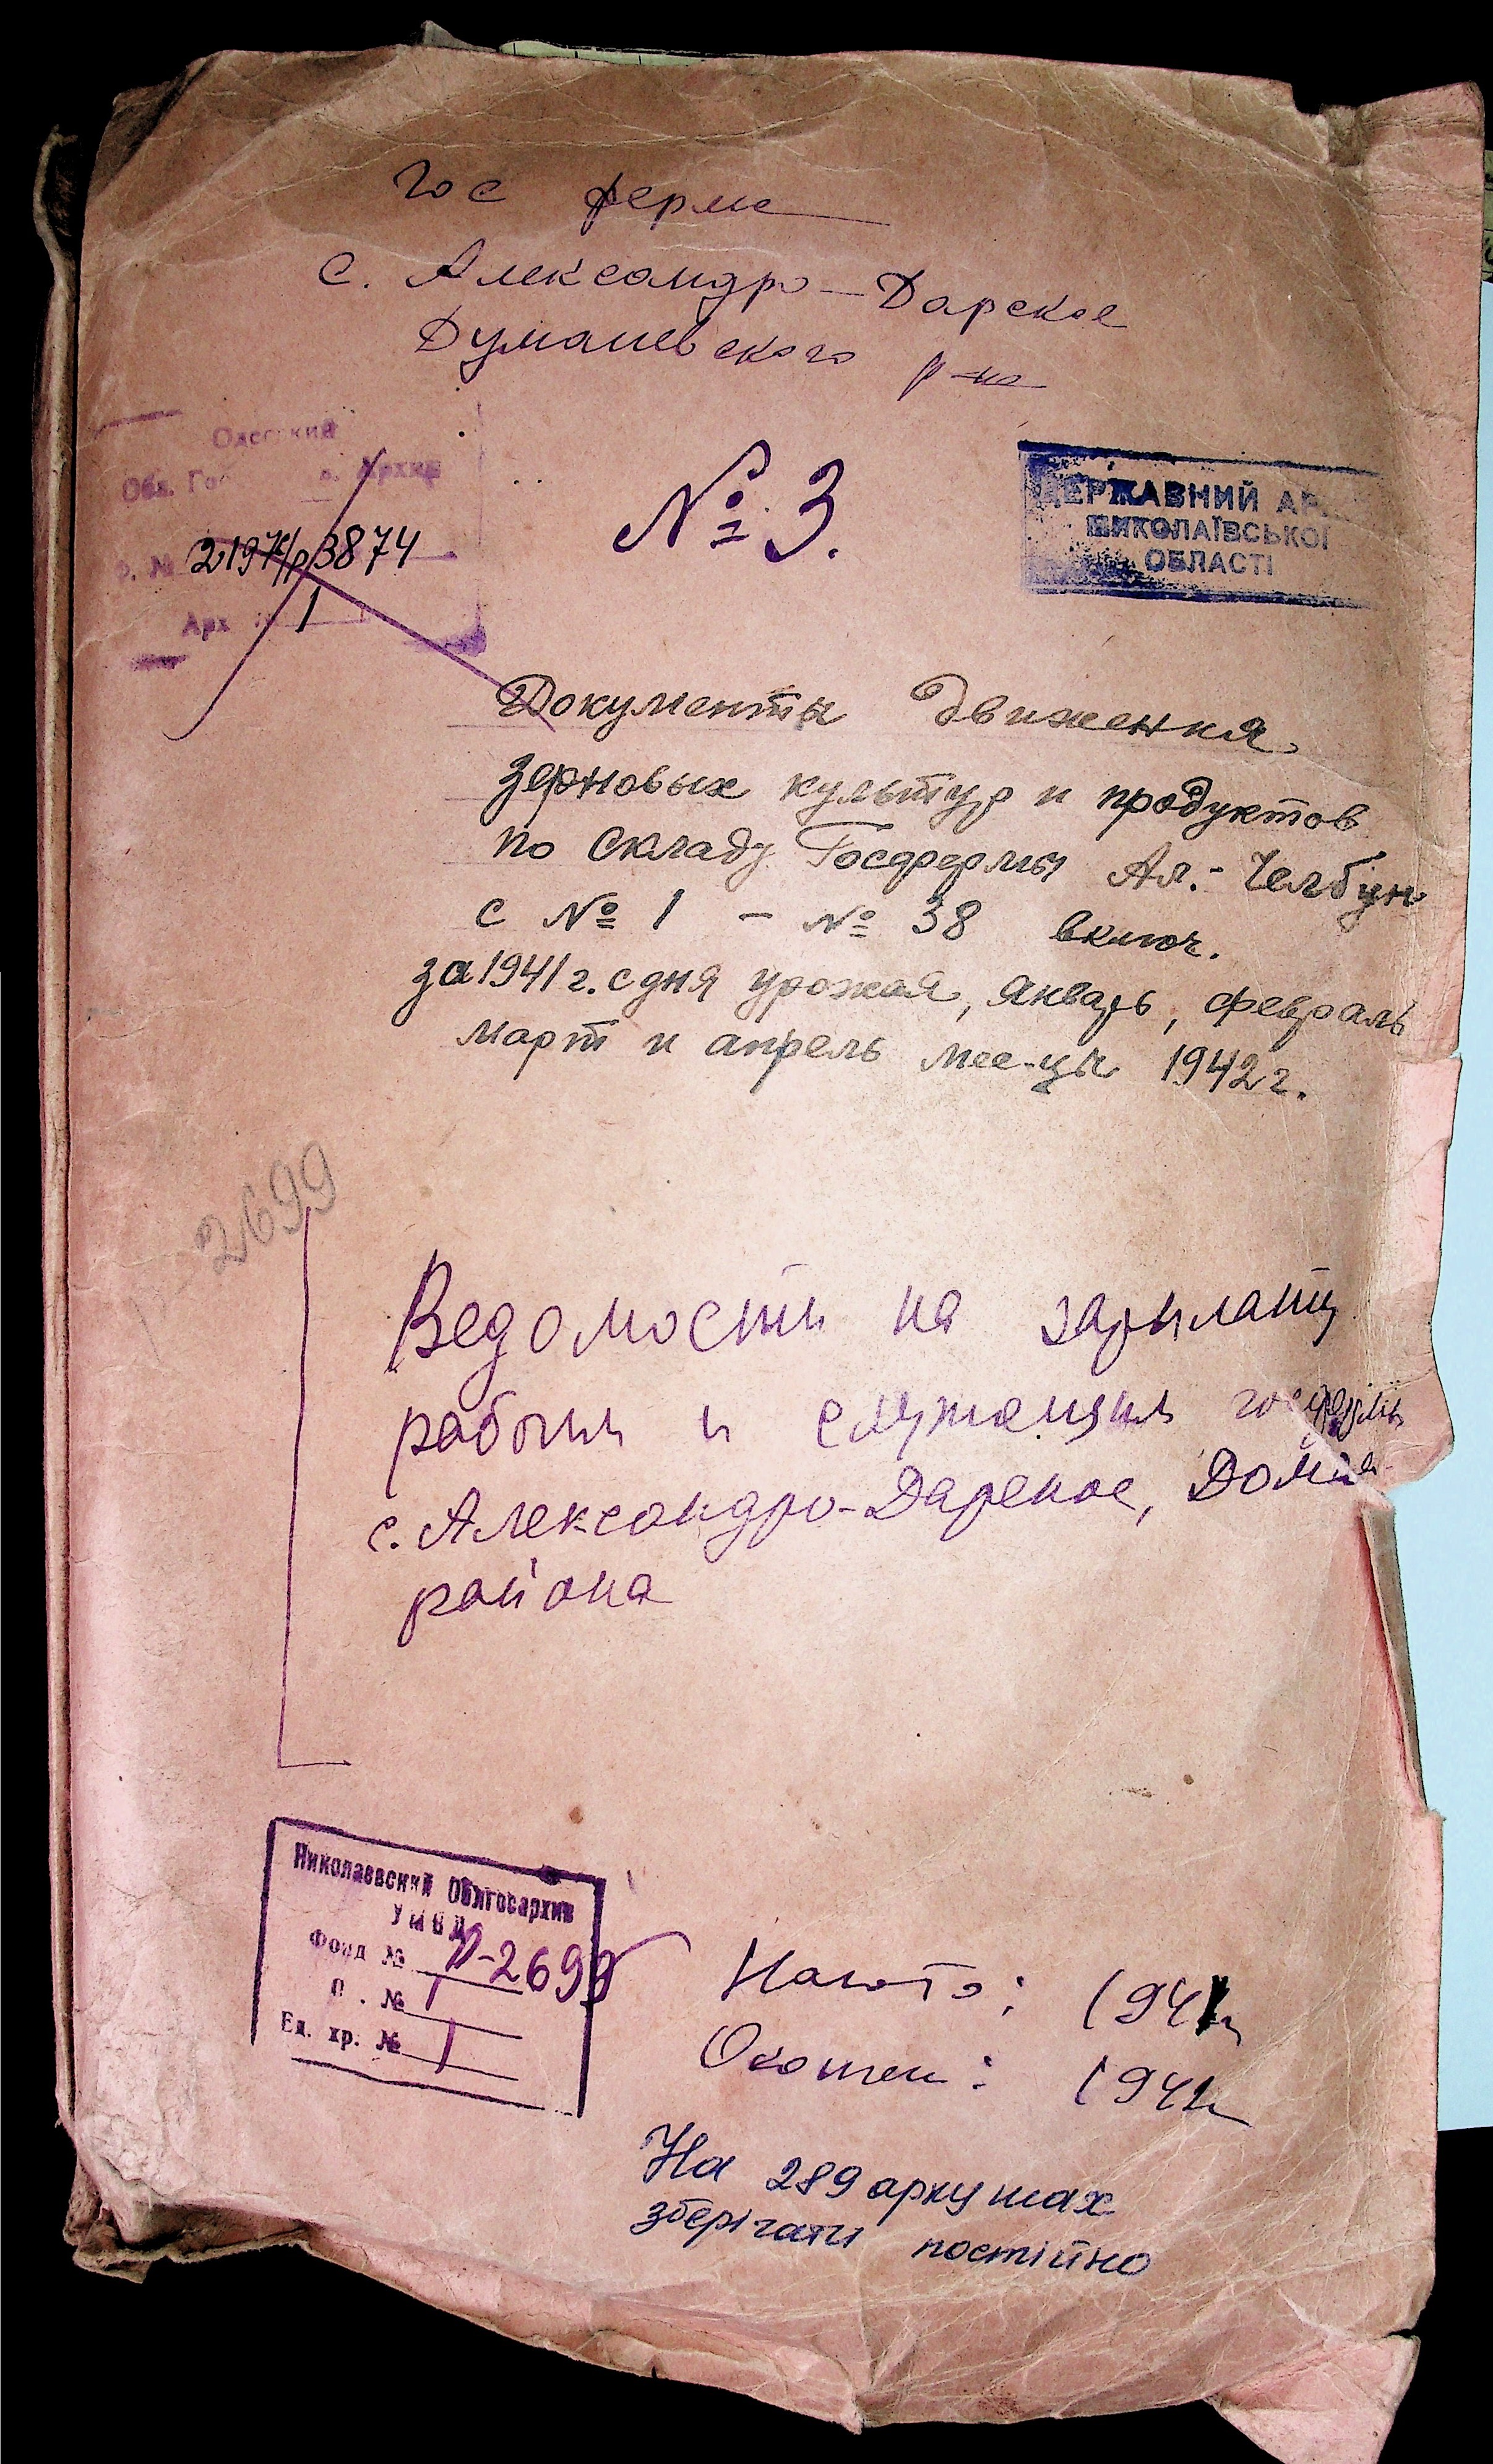 Гос ферме
с. Александро-Дарское
Думаневского р-на
Одесский
Обл. Архив
2197/р 3874
Арх 1
№ 3.
ДЕРЖАВНИЙ АР
МИКОЛАЇВСЬКОЇ
ОБЛАСТІ
Документы движения
зерновых культур и продуктов
по складу Госфермы Ал.-Челбун
с № 1 - № 38 включ.
за 1941 г. с дня урожая, январь, февраль
март и апрель мес-цы 1942 г.
2699
Ведомости на зарплату
рабочим и служащим госфермы
с. Александро-Дарское, Доман-
района
Николаевский Облгосархив
УМВД
Фонд № Р-2699
О . № 1
Ед. хр. № 1
Начато: 1941
Окончен: 1942
На 289 аркушах
зберігати постійно